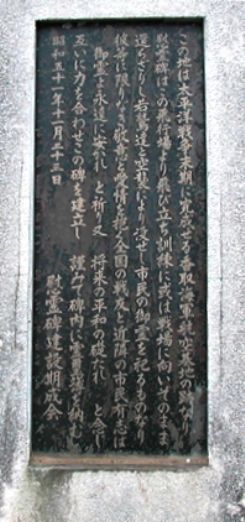 この地は太平洋戦争末期に完成せる香取海軍航空基地の跡なり
慰霊碑はこの飛行場より飛び立ち訓練に或は戦場に向いそのまま
還らざりし若鷲達と空襲により没せし市民の御霊を祀るものなり
彼等に限りなき敬意と愛情を抱く全国の戦友と近隣の市民有志は
御霊よ永遠に安かれ と祈り又 将来の平和の礎たれ と念じ
互いに力を合わせこの碑を建立し 謹みて碑内に霊璽簿を納む
昭和五十一年十一月二十三日
慰霊碑建設期成会